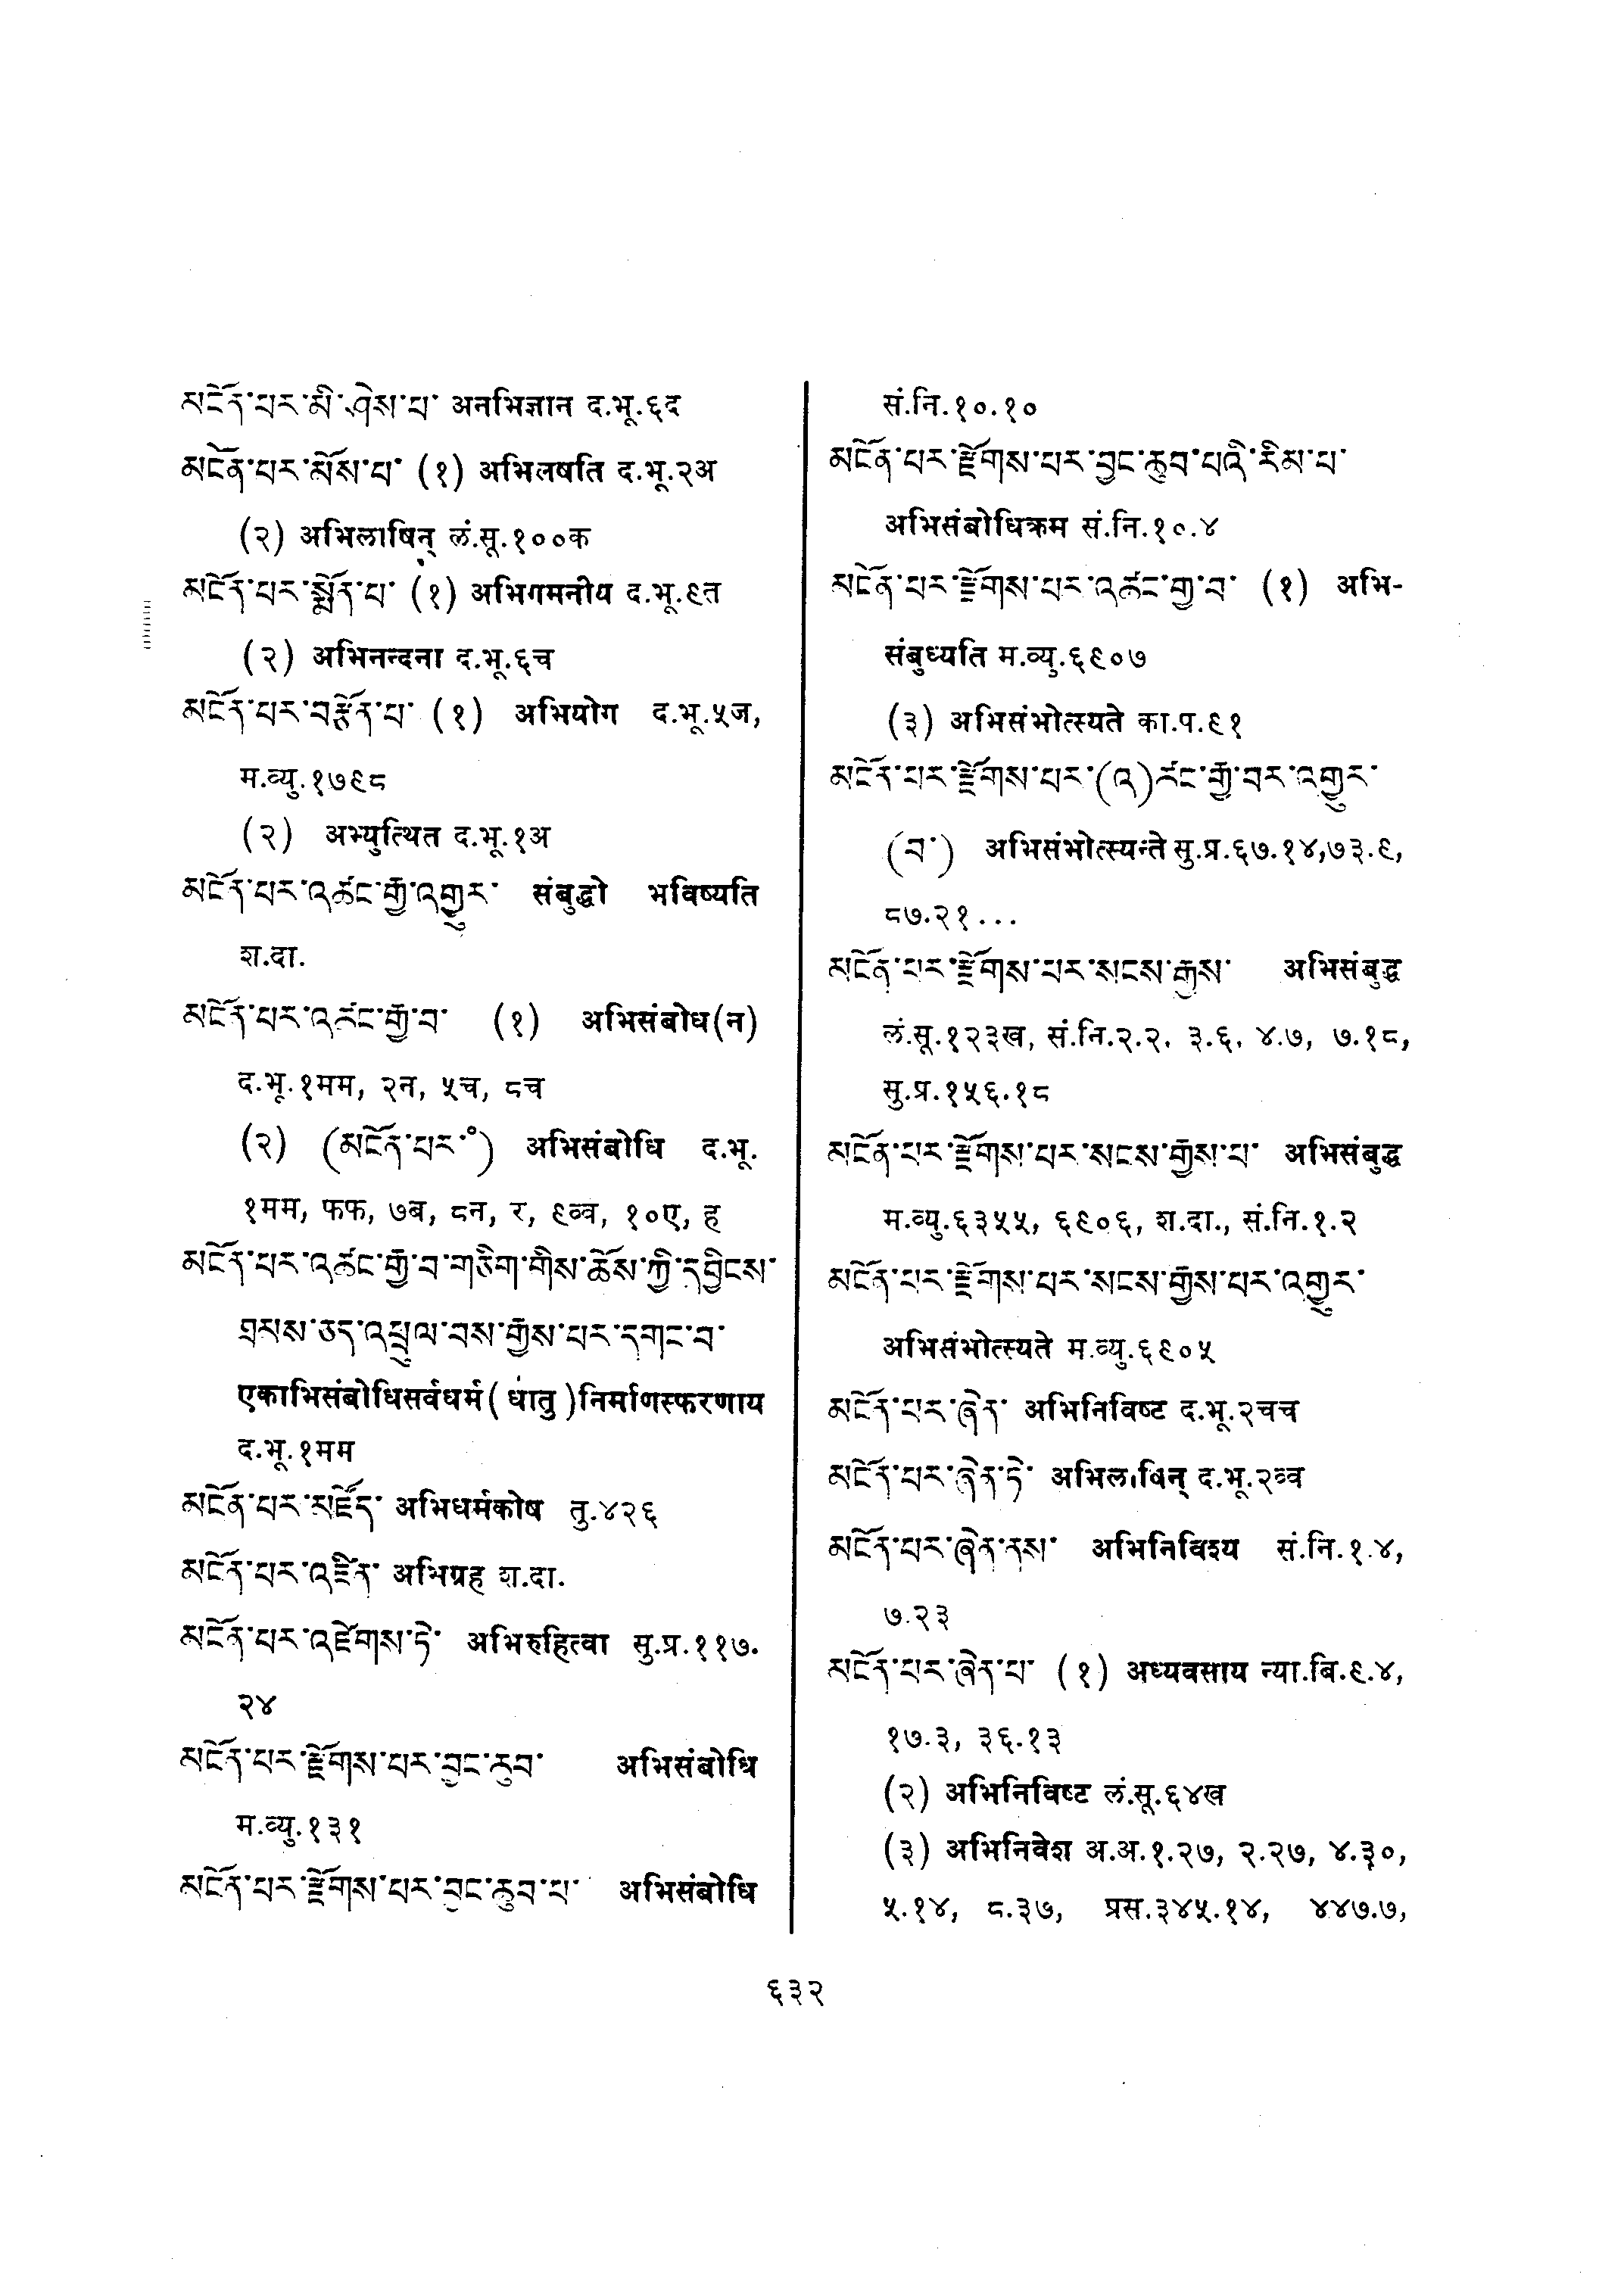 མངོན་པར་མི་ཤེས་པ་ अनभिज्ञान द.भू.६द
མངོན་པར་མོས་པ་ (१) अभिलषति द.भू.२अ
(२) अभिलाषिन् लं.सू.१००क
མངོན་པར་སྨོན་པ་ (१) अभिगमनीय द.भू.९त
(२) अभिनन्दना द.भू.६च
མངོན་པར་བརྩོན་པ་ (१) अभियोग द.भू.५ज,
म.व्यु.१७९८
(२) अभ्युत्थित द.भू.१अ
མངོན་པར་འཚང་རྒྱ་འགྱུར་ संबुद्धो भविष्यति
श.दा.
མངོན་པར་འཚང་རྒྱ་བ་ (१) अभिसंबोध(न)
द.भू.१मम, २न, ५च, ८च
(२) (མངོན་པར་°) अभिसंबोधि द.भू.
१मम, फफ, ७ब, ८न, र, ९व्व, १०ए, ह
མངོན་པར་འཚང་རྒྱ་བ་གཅིག་གིས་ཆོས་ཀྱི་དབྱིངས་
ཐམས་ཅད་འཕྲུལ་བས་རྒྱས་པར་དགང་བ་
एकाभिसंबोधिसर्वधर्म(धातु)निर्माणस्फरणाय
द.भू.१मम
མངོན་པར་མཛོད་ अभिधर्मकोष तु.४२६
མངོན་པར་འཛིན་ अभिग्रह श.दा.
མངོན་པར་འཛེགས་ཏེ་ अभिरुहित्वा सु.प्र.११७.
२४
མངོན་པར་རྫོགས་པར་བྱང་ཆུབ་ अभिसंबोधि
म.व्यु.१३१
མངོན་པར་རྫོགས་པར་བྱང་ཆུབ་པ་ अभिसंबोधि
सं.नि.१०.१०
མངོན་པར་རྫོགས་པར་བྱང་ཆུབ་པའི་རིམ་པ་
अभिसंबोधिक्रम सं.नि.१०.४
མངོན་པར་རྫོགས་པར་འཚང་རྒྱ་བ་ (१) अभि-
संबुध्यति म.व्यु.६९०७
(३) अभिसंभोत्स्यते का.प.९१
མངོན་པར་རྫོགས་པར་(འ)ཚང་རྒྱ་བར་འགྱུར་
(བ་) अभिसंभोत्स्यन्ते सु.प्र.६७.१४,७३.९,
८७.२१...
མངོན་པར་རྫོགས་པར་སངས་རྒྱས་ अभिसंबुद्ध
लं.सू.१२३ख, सं.नि.२.२, ३.६, ४.७, ७.१८,
सु.प्र.१५६.१८
མངོན་པར་རྫོགས་པར་སངས་རྒྱས་པ་ अभिसंबुद्ध
म.व्यु.६३५५, ६९०६, श.दा., सं.नि.१.२
མངོན་པར་རྫོགས་པར་སངས་རྒྱས་པར་འགྱུར་
अभिसंभोत्स्यते म.व्यु.६९०५
མངོན་པར་ཞེན་ अभिनिविष्ट द.भू.२चच
མངོན་པར་ཞེན་ཏེ་ अभिलाषिन् द.भू.२व्व
མངོན་པར་ཞེན་ནས་ अभिनिविश्य सं.नि.१.४,
७.२३
མངོན་པར་ཞེན་པ་ (१) अध्यवसाय न्या.बि.९.४,
१७.३, ३६.१३
(२) अभिनिविष्ट लं.सू.६४ख
(३) अभिनिवेश अ.अ.१.२७, २.२७, ४.३०,
५.१४, ८.३७, प्रस.३४५.१४, ४४७.७,
६३२